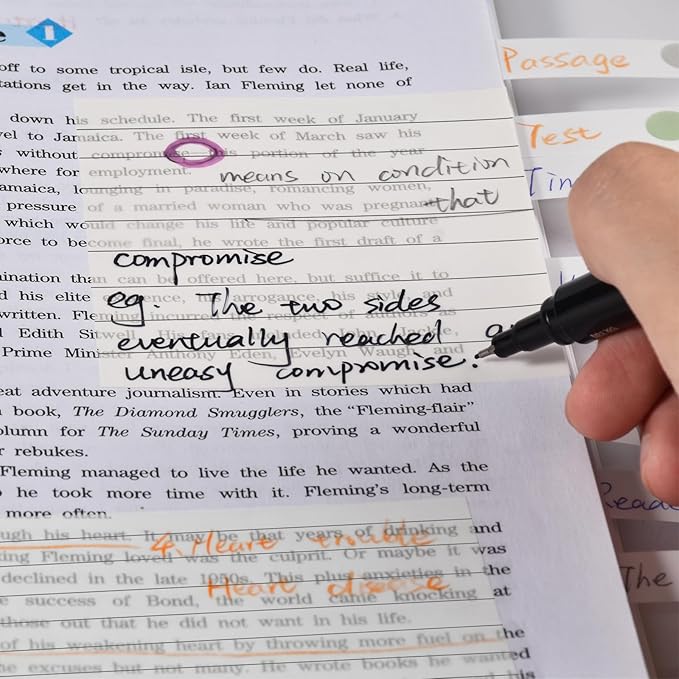 I
off to some tropical isle, but few do. Real life,
get in the way. Ian Fleming let none of
down his schedule. The first week of January
to Jamaica. The first week of March saw his
without compromise, this portion of the year
where for employment.
means on condition
lounging in paradise, romancing women,
pressure of a married woman who was pregnant
that
which would change his life and popular culture
to become final, he wrote the first draft of a
compromise
than can be offered here, but suffice it to
his elite
arrogance, his style, and
eg. The two sides
written.
incurred the respect of authors as
Edith
eventually reached a
Prime Minister Anthony Eden, Evelyn Waugh and
uneasy compromise.
adventure journalism. Even in stories which had
book, The Diamond Smugglers, the “Fleming-flair”
for The Sunday Times, proving a wonderful
rebukes.
Fleming managed to live the life he wanted. As the
he took more time with it. Fleming's long-term
more often.
his heart. It may be that years of drinking and
4. Heart trouble
Fleming loved was the culprit. Or maybe it was
declined in the late 1950s. This plus anxieties in the
Heart disease
success of Bond, the world came knocking at
those out that he did not want in his life.
of his weakening heart by throwing more fuel on the
excuses but not many. He wrote books he wanted
his
Passage
Test
The